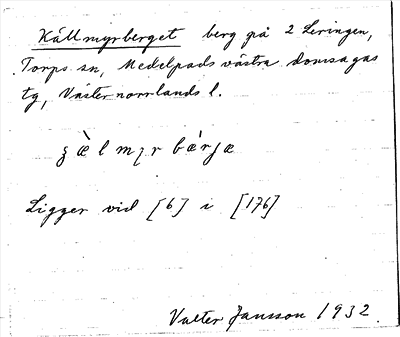 Källmyrberget berg på 2 Leringen,
Torps sn, Medelpads västra domsagas
tg, Västernorrlands l.
Ligger vid [6] i [176]
Valter Jansson 1932.